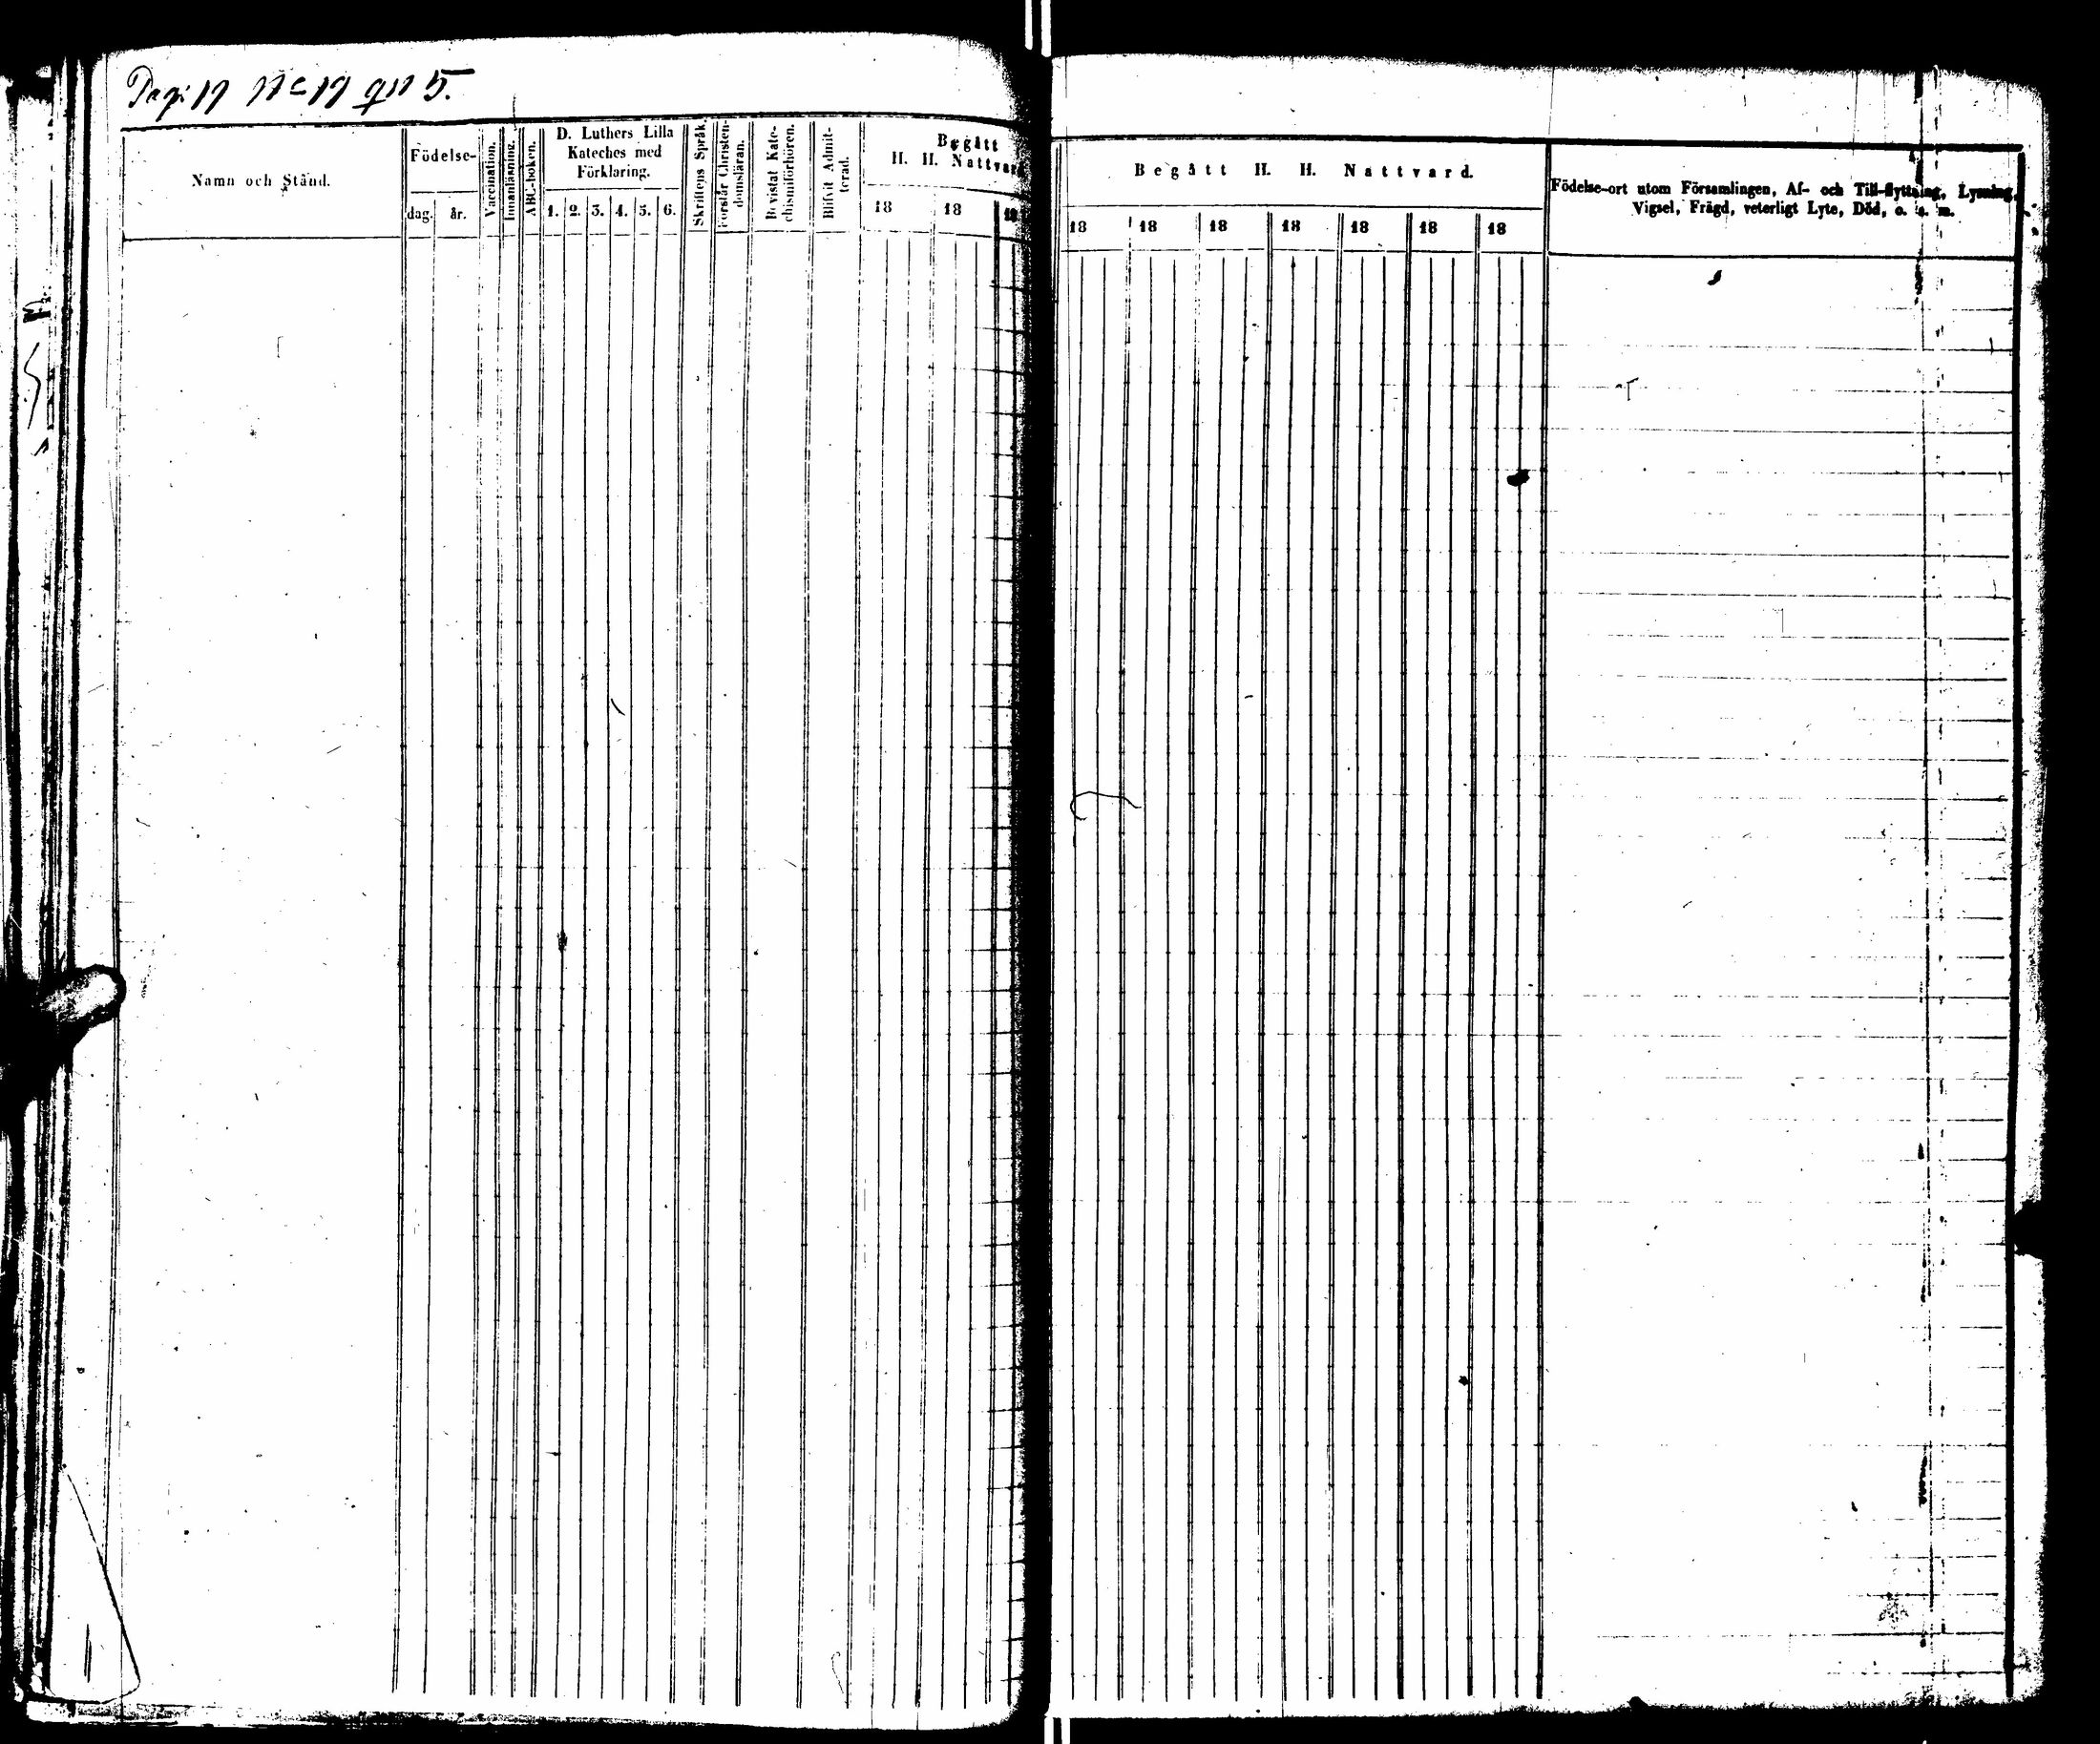 5.
Namn och Stånd.
Födelse-
dag. år.
Vaccination.
Innanläsning.
ABC-boken.
D. Luthers Lilla
Kateches med
Förklaring.
1. 2. 3. 4. 5. 6.
Skriftens Språk.
Förstår Christen-
domsläran.
Bevistat Kate-
chismiförhören.
Blifvit Admit-
terad.
Begått
H. H. Nattvard
18 18 18
Begått H. H. Nattvard.
18 18 18 18 18 18 18
Födelse-ort utom Församlingen, Af- och Till-flyttning, Lysning,
Vigsel, Frägd, veterligt Lyte, Död, o. s. m.